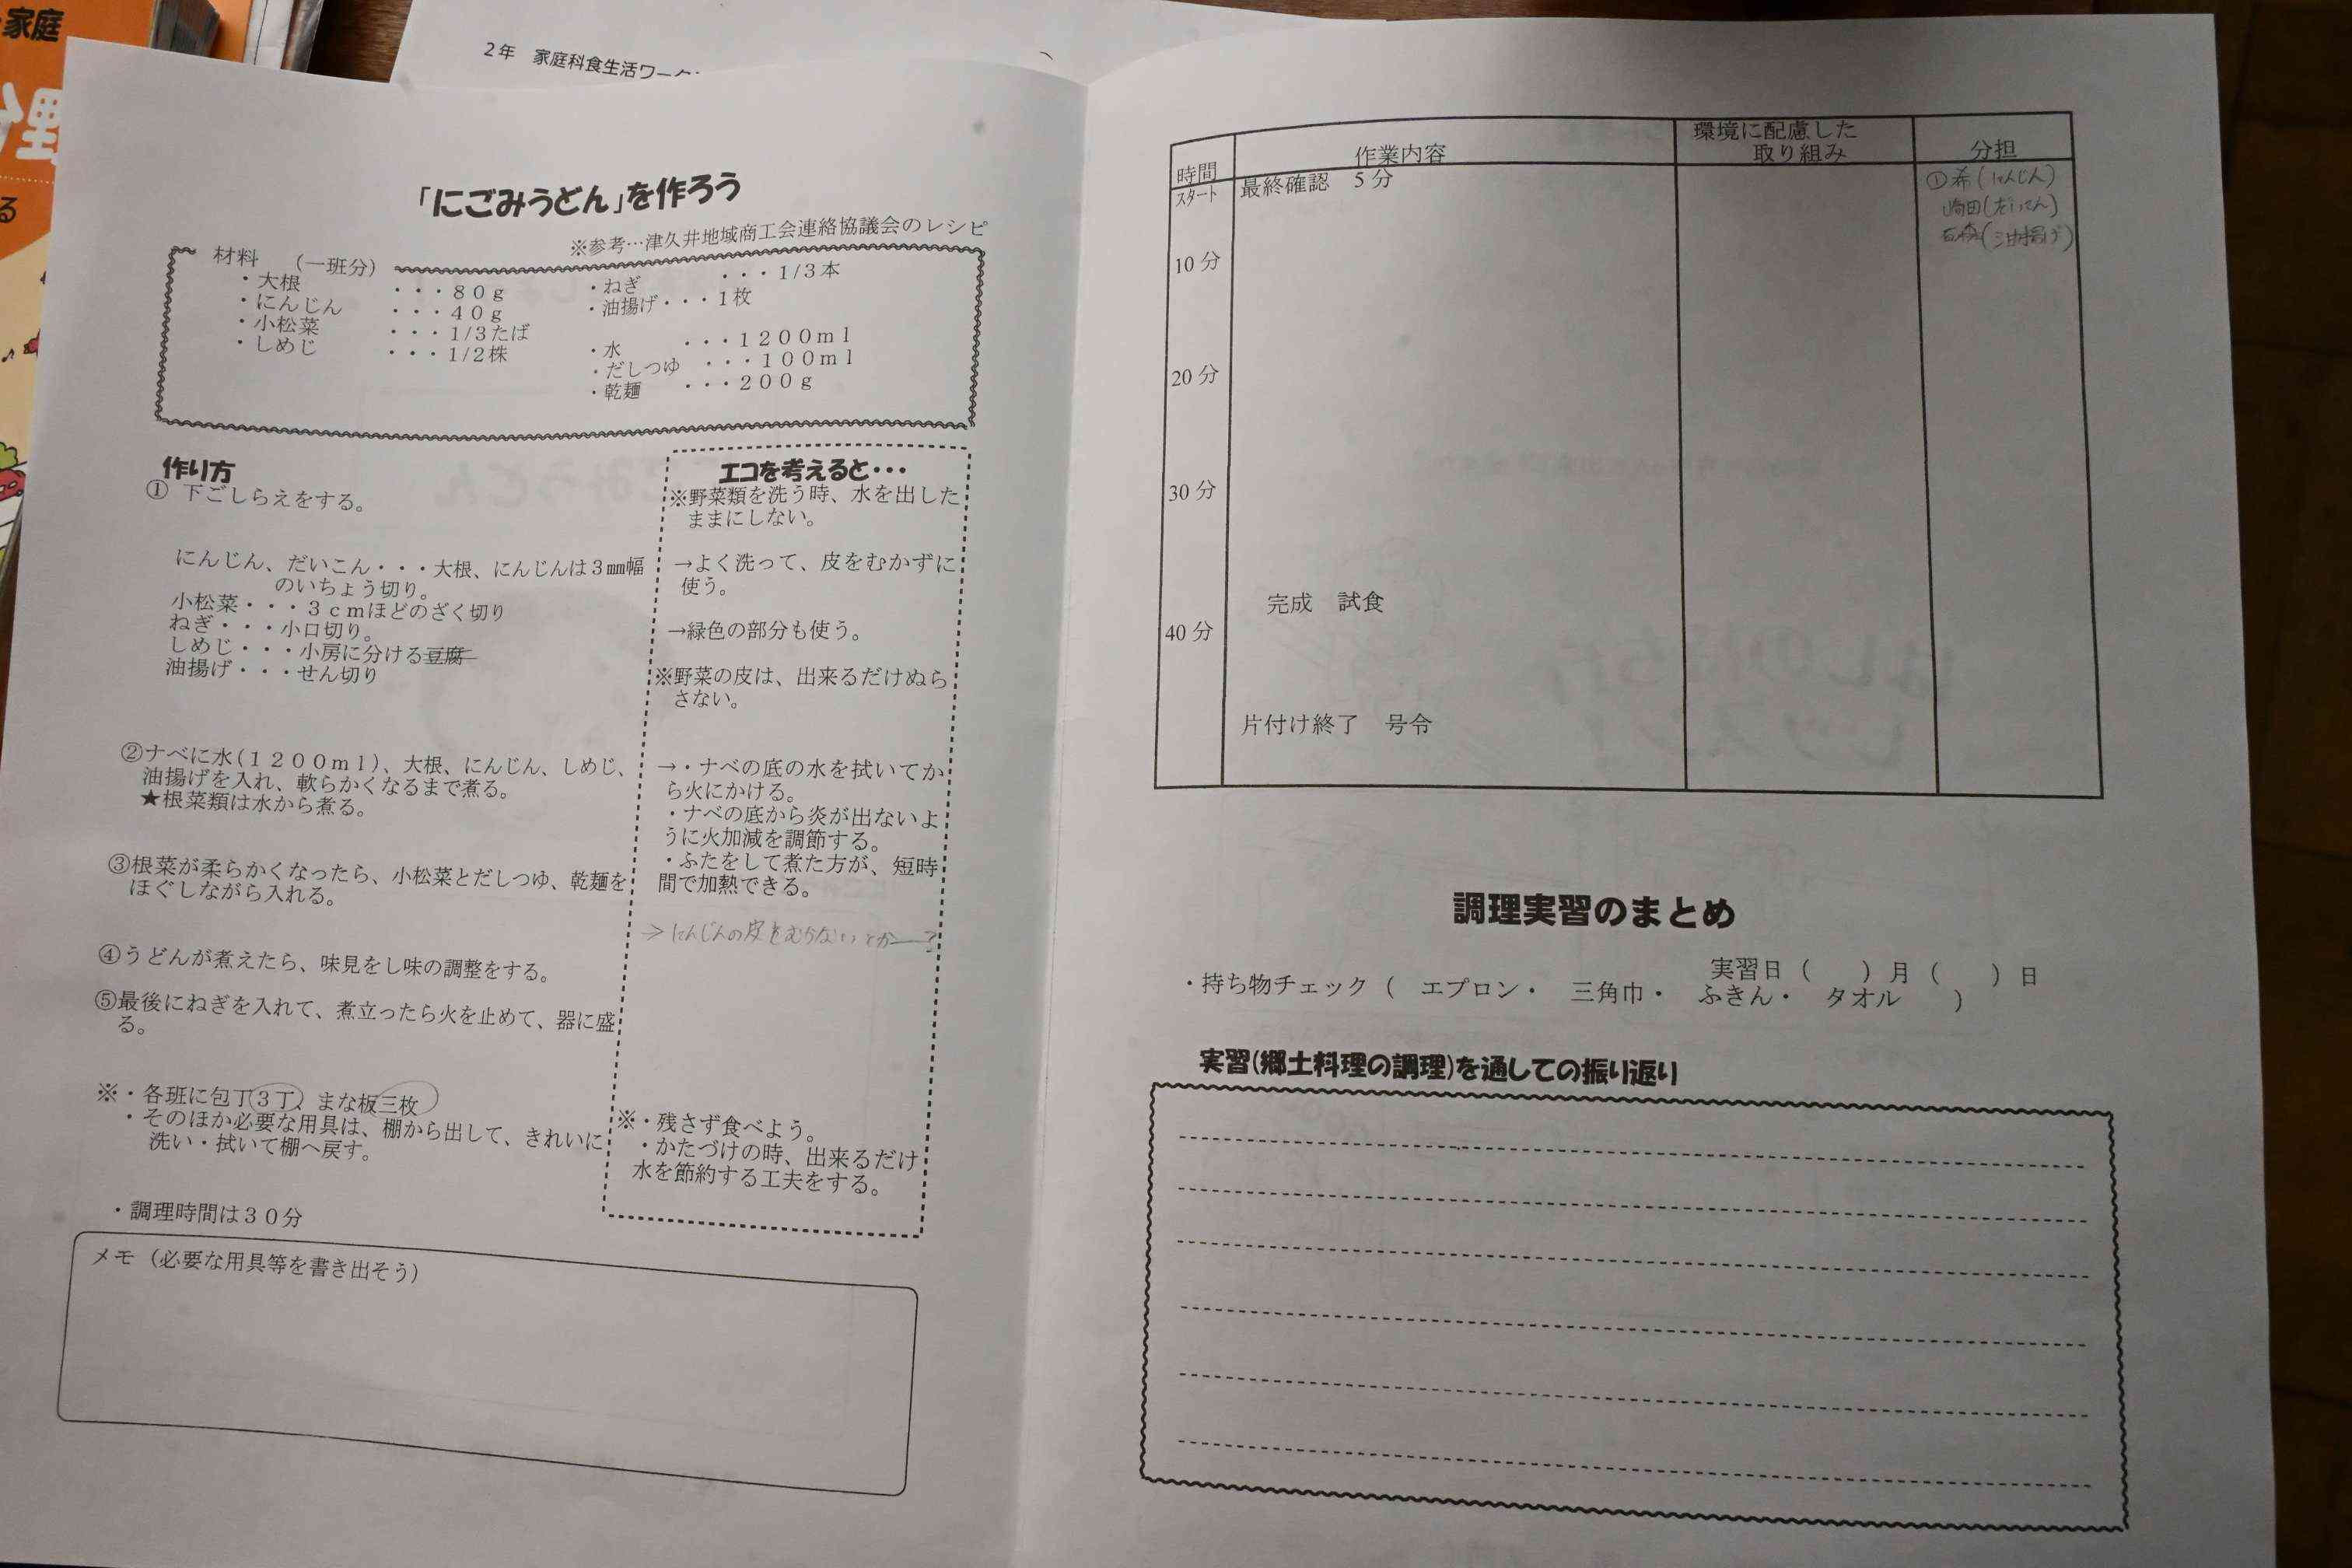 家庭
理
る
2年 家庭科食生活ワーク
「にごみうどん」を作ろう
※参考…津久井地域商工会連絡協議会のレシピ
材料 (一班分)
・大根 ・・・80g
・にんじん ・・・40g
・小松菜 ・・・1/3たば
・しめじ ・・・1/2株
・ねぎ ・・・1/3本
・油揚げ・・・1枚
・水 ・・・1200ml
・だしつゆ ・・・100ml
・乾麺 ・・・200g
作り方
① 下ごしらえをする。
にんじん、だいこん・・・大根、にんじんは3㎜幅
のいちょう切り。
小松菜・・・3cmほどのざく切り
ねぎ・・・小口切り。
しめじ・・・小房に分ける豆腐
油揚げ・・・せん切り
②ナベに水(1200ml)、大根、にんじん、しめじ、
油揚げを入れ、軟らかくなるまで煮る。
★根菜類は水から煮る。
③根菜が柔らかくなったら、小松菜とだしつゆ、乾麺を
ほぐしながら入れる。
④うどんが煮えたら、味見をし味の調整をする。
⑤最後にねぎを入れて、煮立ったら火を止めて、器に盛
る。
※・各班に包丁3丁、まな板三枚
・そのほか必要な用具は、棚から出して、きれいに
洗い・拭いて棚へ戻す。
・調理時間は30分
メモ(必要な用具等を書き出そう)
エコを考えると・・・
※野菜類を洗う時、水を出した
ままにしない。
→よく洗って、皮をむかずに
使う。
→緑色の部分も使う。
※野菜の皮は、出来るだけぬら
さない。
→・ナベの底の水を拭いてか
ら火にかける。
・ナベの底から炎が出ないよ
うに火加減を調節する。
・ふたをして煮た方が、短時
間で加熱できる。
→にんじんの皮をむかないとか―?
※・残さず食べよう。
・かたづけの時、出来るだけ
水を節約する工夫をする。
時間 作業内容 環境に配慮した
取り組み 分担
スタート 最終確認 5分
①希(にんじん)
崎田(だいこん)
石橋(油揚げ)
10分
20分
30分
完成 試食
40分
片付け終了 号令
調理実習のまとめ
実習日( )月( )日
・持ち物チェック( エプロン・ 三角巾・ ふきん・ タオル )
実習(郷土料理の調理)を通しての振り返り